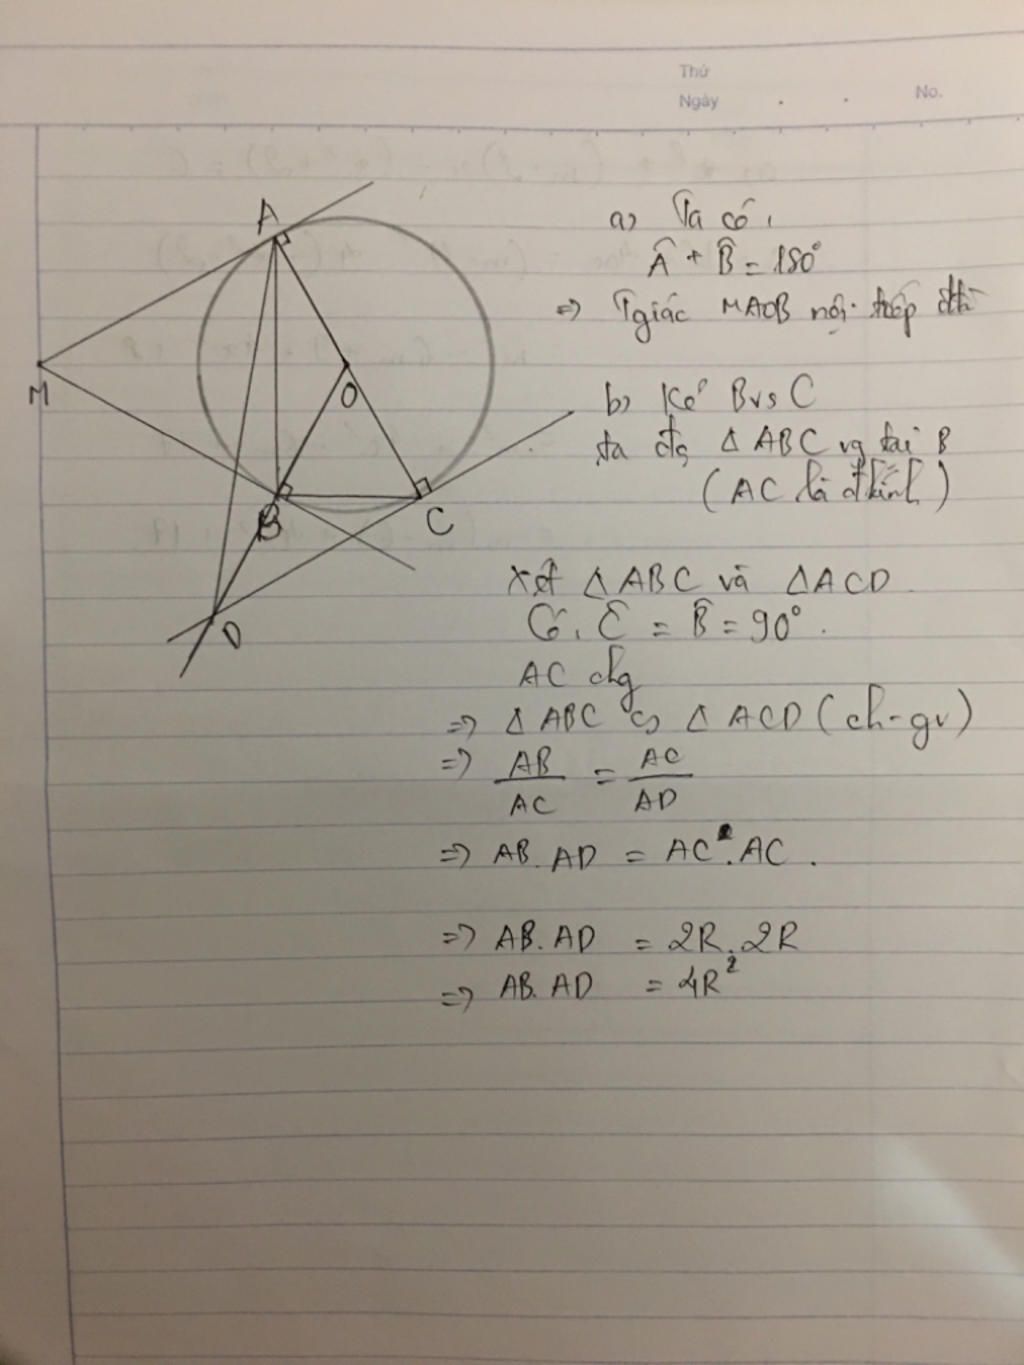 Thứ
Ngày . . No.
A
M
O
B
C
D
a) Ta có,
Â + B̂ = 180°
=> Tgiác MAOB nội tiếp đtr
b) Kẻ B vs C
ta đc ΔABC vg tại B
(AC là đkính)
Xét ΔABC và ΔACD
Có, Ĉ = B̂ = 90°.
AC chg
=> ΔABC ∽ ΔACD (ch-gv)
=> AB/AC = AC/AD
=> AB.AD = AC.AC.
=> AB.AD = 2R.2R
=> AB.AD = 4R²